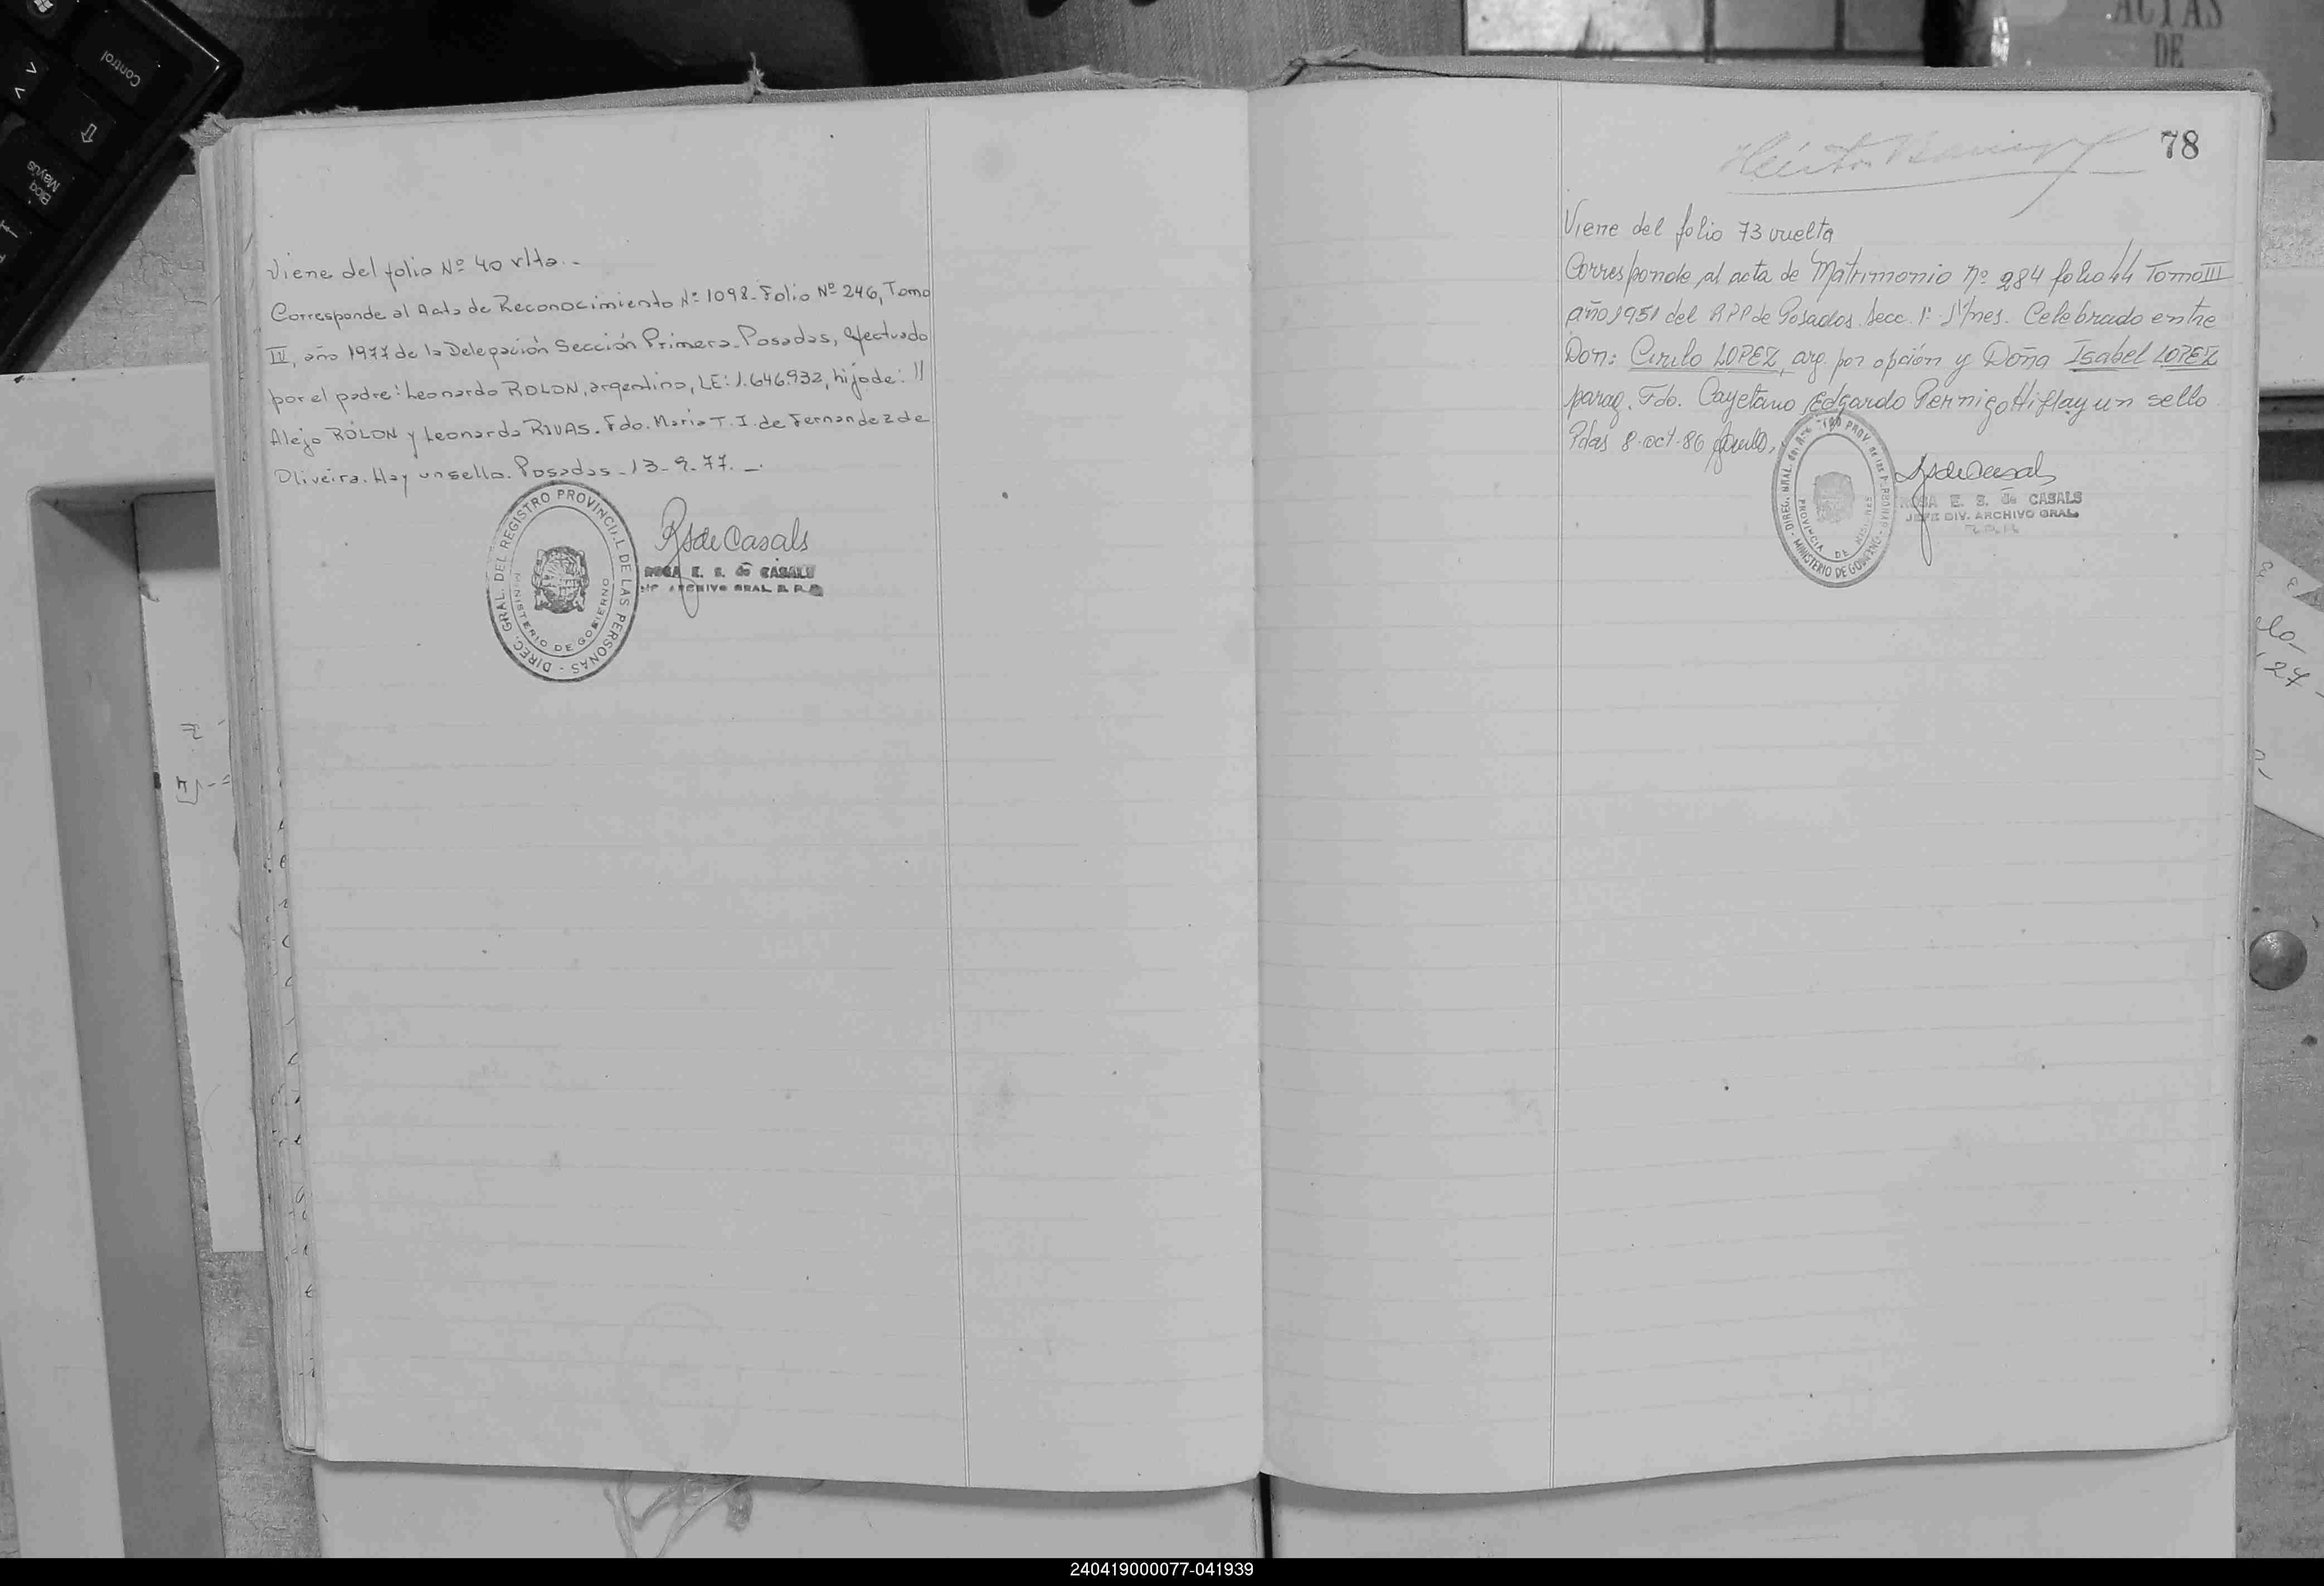 Control
Bloq
Mayús
ACTAS
DE
Viene del folio Nº 40 vlta.-
Corresponde al Acta de Reconocimiento Nº 1098- Folio Nº 246, Tomo
IV, año 1977 de la Delegación Sección Primera- Posadas, efectuado
por el padre: Leonardo ROLON, argentino, LE: 1.646.932, hijo de: //
Alejo ROLON y Leonarda RIVAS. Fdo. Maria T. I. de Fernandez de
Oliveira. Hay un sello. Posadas - 13-9-77. -.
DIREC. GRAL. DEL REGISTRO PROVINCIAL DE LAS PERSONAS -
MINISTERIO DE GOBIERNO
RSde Casals
ROSA E. S. de CASALS
ARCHIVO GRAL. R. P. P.
78
Héctor
Viene del folio 73 vuelta
Corresponde al acta de Matrimonio Nº 284 folio 44 Tomo III
año 1951 del RPP de Posadas. Secc. 1ª Mnes. Celebrado entre
Don: Cirilo LOPEZ, arg. por opción y Doña Isabel LOPEZ
parag. Fdo. Cayetano Edgardo Pernigotti Hay un sello
Pdas 8-oct-86
DIREC. GRAL. del PROV de las PERSONAS
MINISTERIO DE GOBIERNO
PROVINCIA DE MISIONES
RSde Casals
ROSA E. S. de CASALS
JEFE DIV. ARCHIVO GRAL.
R.P.P.
lo-
27-
240419000077-041939